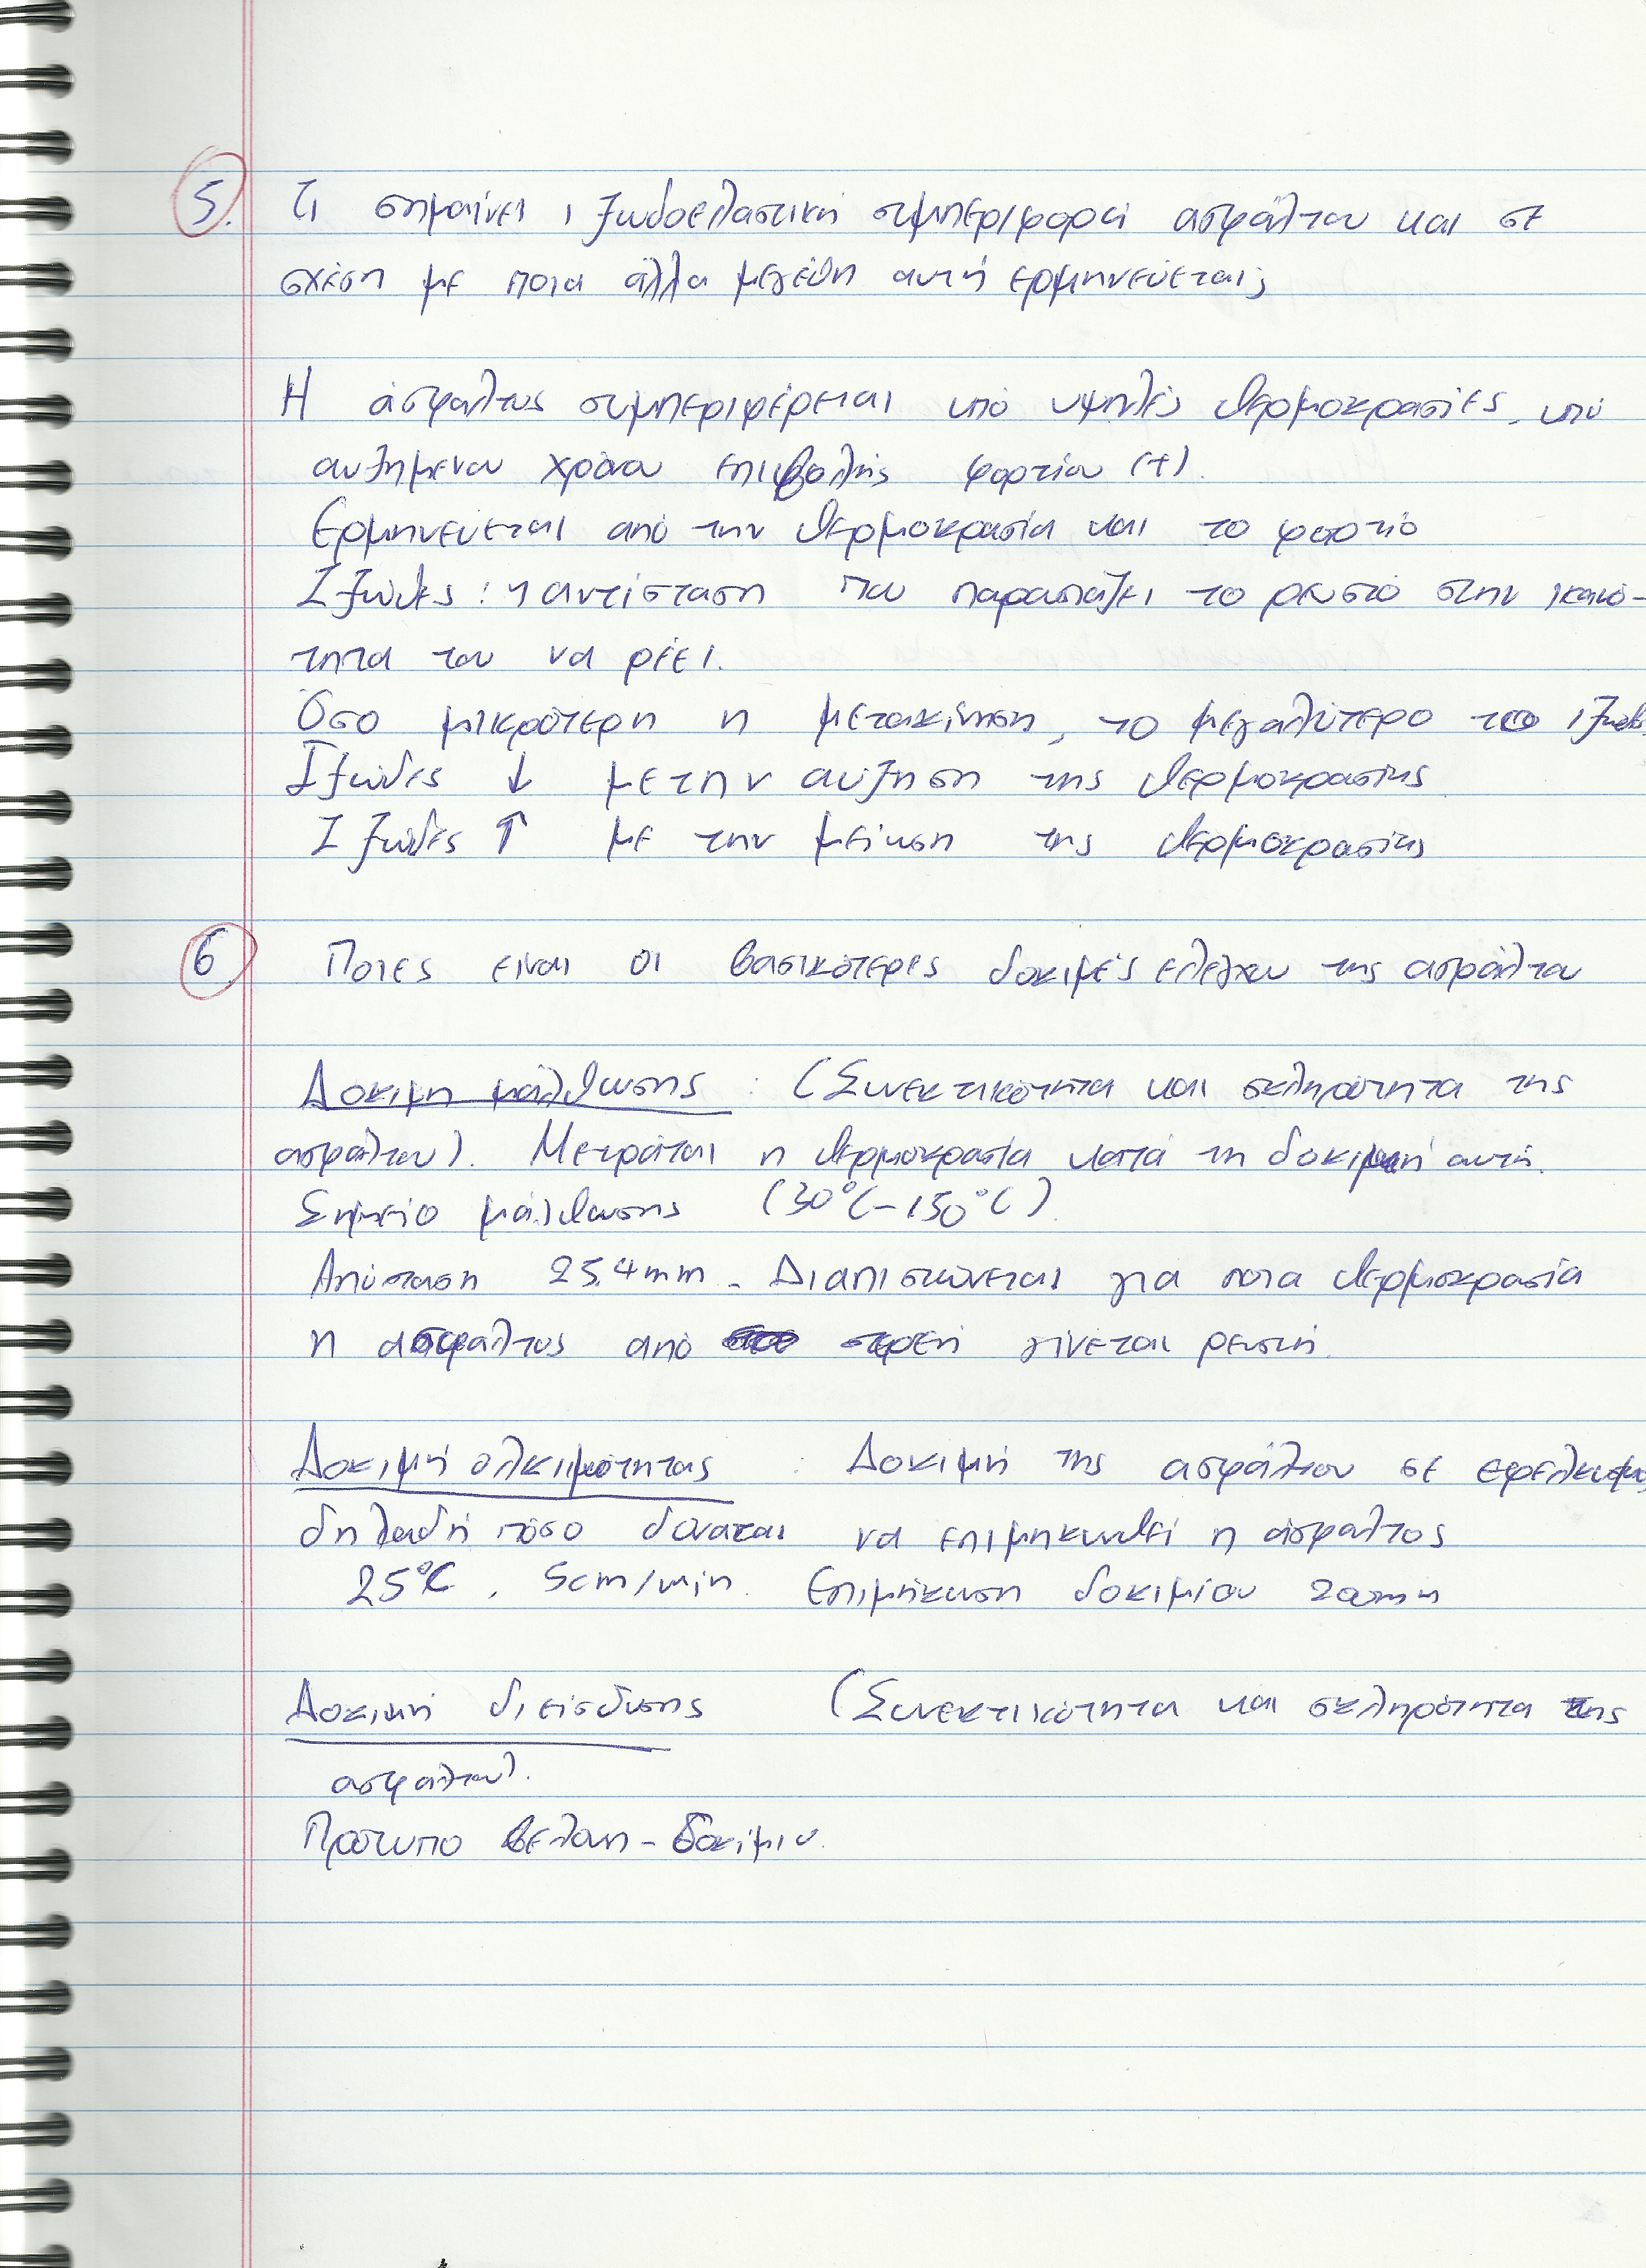 5. Τι σημαίνει ιξωδοελαστική συμπεριφορά ασφάλτου και σε
σχέση με ποια άλλα μεγέθη αυτή ερμηνεύεται;
Η άσφαλτος συμπεριφέρεται υπό υψηλές θερμοκρασίες, υπό
αυξημένου χρόνου επιβολής φορτίου (+).
Ερμηνεύεται από την θερμοκρασία και το φορτίο
Ιξώδες: η αντίσταση που παρουσιάζει το ρευστό στην ικανό-
τητα του να ρέει.
Όσο μικρότερη η μετακίνηση, το μεγαλύτερο το ιξώδες
Ιξώδες ↓ με την αύξηση της θερμοκρασίας
Ιξώδες ↑ με την μείωση της θερμοκρασίας
6 Ποιες είναι οι βασικότερες δοκιμές ελέγχου της ασφάλτου
Δοκιμη μάλθωσης : (Συνεκτικότητα και σκληρότητα της
ασφάλτου). Μετράται η θερμοκρασία κατά τη δοκιμή αυτή.
Σημείο μάλθωσης (30°C-150°C)
Απόσταση 25,4mm - Διαπιστώνεται για ποια θερμοκρασία
η ασφαλτος από στερεή γίνεται ρευστή.
Δοκιμή ολκιμότητας : Δοκιμή της ασφάλτου σε εφελκυσμο,
δηλαδή πόσο δύναται να επιμηκυνθεί η άσφαλτος
25°C, 5cm/min. Επιμήκυνση δοκιμίου
Δοκιμή διείσδυσης (Συνεκτικότητα και σκληρότητα της
ασφάλτου).
Πρότυπο βελόνη - δοκίμιο.